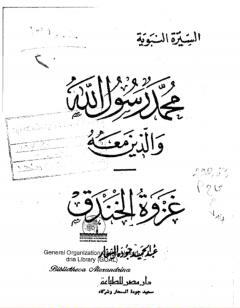 السيرة النبوية
محمد رسول الله
والذين معه
غزوة الخندق
عبد الحميد جودة السحار
General Organization
dria Library (GOAL)
Bibliotheca Alexandrina
دار مصر للطباعة
سعيد جودة السحار وشركاه